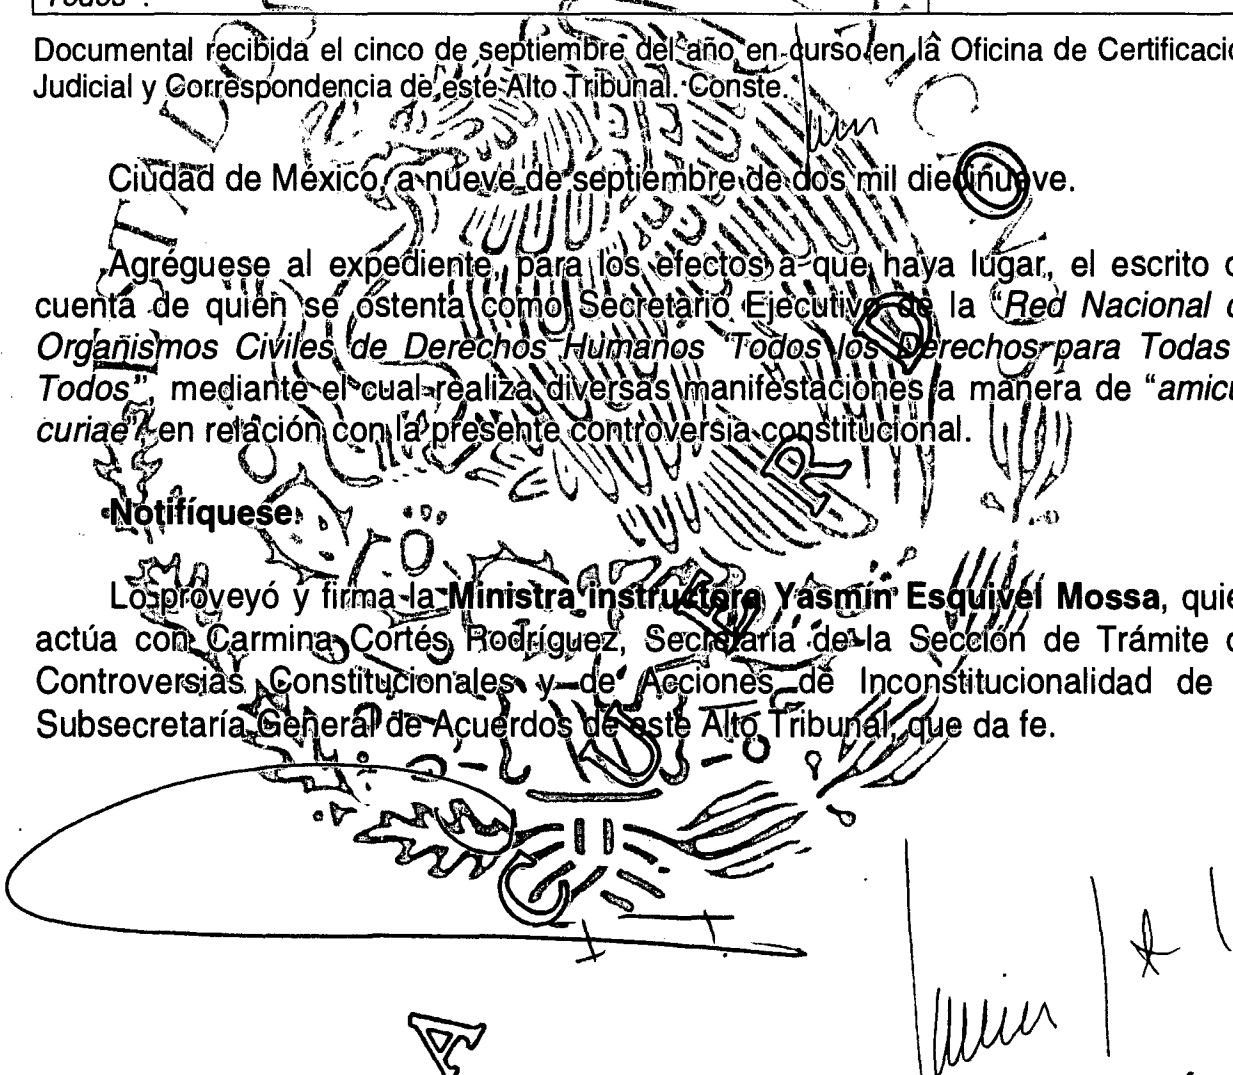 Todos".
Documental recibida el cinco de septiembre del año en curso en la Oficina de Certificació
Judicial y Correspondencia de este Alto Tribunal. Conste.
Ciudad de México, a nueve de septiembre de dos mil diecinueve.
Agréguese al expediente, para los efectos a que haya lugar, el escrito d
cuenta de quien se ostenta como Secretario Ejecutivo de la "Red Nacional d
Organismos Civiles de Derechos Humanos 'Todos los Derechos para Todas
Todos'", mediante el cual realiza diversas manifestaciones a manera de "amicu
curiae", en relación con la presente controversia constitucional.
Notifíquese.
Lo proveyó y firma la Ministra instructora Yasmín Esquivel Mossa, quie
actúa con Carmina Cortés Rodríguez, Secretaria de la Sección de Trámite d
Controversias Constitucionales y de Acciones de Inconstitucionalidad de
Subsecretaría General de Acuerdos de este Alto Tribunal, que da fe.
A C U E R D O